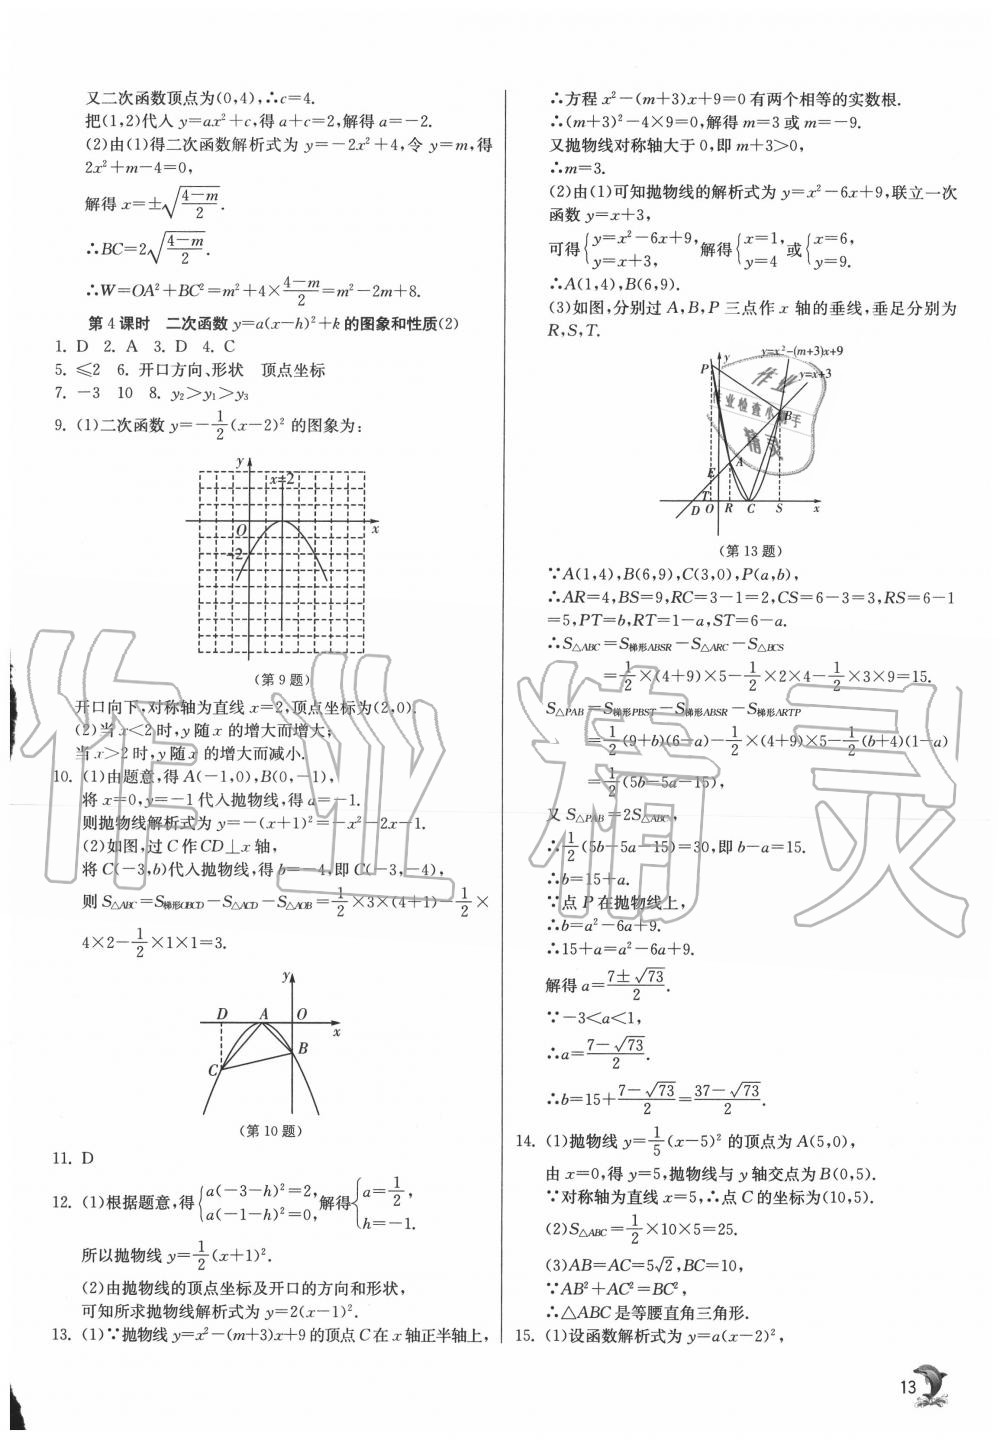 又二次函数顶点为(0,4),∴c=4.
把(1,2)代入 y=ax²+c,得 a+c=2,解得 a=-2.
(2)由(1)得二次函数解析式为 y=-2x²+4,令 y=m,得
2x²+m-4=0,
解得 x=±√((4-m)/2).
∴BC=2√((4-m)/2).
∴W=OA²+BC²=m²+4×(4-m)/2=m²-2m+8.
第 4 课时 二次函数 y=a(x-h)²+k 的图象和性质(2)
1. D 2. A 3. D 4. C
5. ≤2 6. 开口方向、形状 顶点坐标
7. -3 10 8. y₂>y₁>y₃
9. (1)二次函数 y=-1/2(x-2)² 的图象为:
y
x=2
O
x
-2
(第 9 题)
开口向下,对称轴为直线 x=2,顶点坐标为(2,0).
(2)当 x<2 时,y 随 x 的增大而增大;
当 x>2 时,y 随 x 的增大而减小.
10. (1)由题意,得 A(-1,0),B(0,-1),
将 x=0,y=-1 代入抛物线,得 a=-1.
则抛物线解析式为 y=-(x+1)²=-x²-2x-1.
(2)如图,过 C 作 CD⊥x 轴,
将 C(-3,b)代入抛物线,得 b=-4,即 C(-3,-4),
则 S△ABC=S梯形OBCD-S△ACD-S△AOB=1/2×3×(4+1)-1/2×
4×2-1/2×1×1=3.
y
D A O
x
B
C
(第 10 题)
11. D
12. (1)根据题意,得{a(-3-h)²=2, a(-1-h)²=0, 解得{a=1/2, h=-1.
所以抛物线 y=1/2(x+1)².
(2)由抛物线的顶点坐标及开口的方向和形状,
可知所求抛物线解析式为 y=2(x-1)².
13. (1)∵抛物线 y=x²-(m+3)x+9 的顶点 C 在 x 轴正半轴上,
∴方程 x²-(m+3)x+9=0 有两个相等的实数根.
∴(m+3)²-4×9=0,解得 m=3 或 m=-9.
又抛物线对称轴大于 0,即 m+3>0,
∴m=3.
(2)由(1)可知抛物线的解析式为 y=x²-6x+9,联立一次
函数 y=x+3,
可得{y=x²-6x+9, y=x+3, 解得{x=1, y=4 或{x=6, y=9.
∴A(1,4),B(6,9).
(3)如图,分别过 A,B,P 三点作 x 轴的垂线,垂足分别为
R,S,T.
y y=x²-(m+3)x+9
P
y=x+3
B
A
E
T
D O R C S x
(第 13 题)
∵A(1,4),B(6,9),C(3,0),P(a,b),
∴AR=4,BS=9,RC=3-1=2,CS=6-3=3,RS=6-1
=5,PT=b,RT=1-a,ST=6-a.
∴S△ABC=S梯形ABSR-S△ARC-S△BCS
=1/2×(4+9)×5-1/2×2×4-1/2×3×9=15.
S△PAB=S梯形PBST-S梯形ABSR-S梯形ARTP
=1/2(9+b)(6-a)-1/2×(4+9)×5-1/2(b+4)(1-a)
=1/2(5b-5a-15),
又 S△PAB=2S△ABC,
∴1/2(5b-5a-15)=30,即 b-a=15.
∴b=15+a.
∵点 P 在抛物线上,
∴b=a²-6a+9.
∴15+a=a²-6a+9.
解得 a=(7±√73)/2.
∵-3<a<1,
∴a=(7-√73)/2.
∴b=15+(7-√73)/2=(37-√73)/2.
14. (1)抛物线 y=1/5(x-5)² 的顶点为 A(5,0),
由 x=0,得 y=5,抛物线与 y 轴交点为 B(0,5).
∵对称轴为直线 x=5,∴点 C 的坐标为(10,5).
(2)S△ABC=1/2×10×5=25.
(3)AB=AC=5√2,BC=10,
∵AB²+AC²=BC²,
∴△ABC 是等腰直角三角形.
15. (1)设函数解析式为 y=a(x-2)²,
13
作业精灵